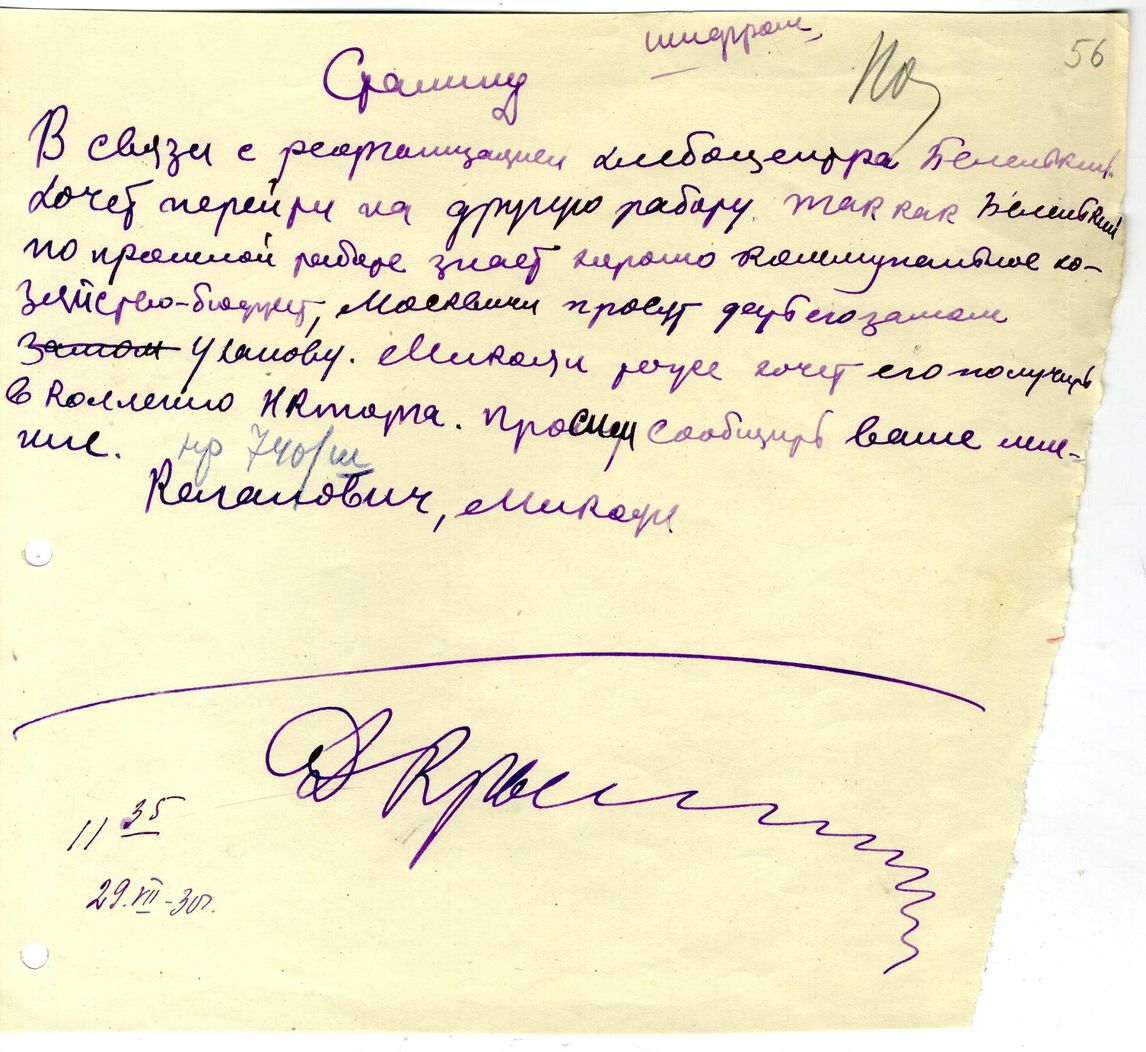 шифром,
56
Сталину
В связи с реорганизацией хлебоцентра Беленький
хочет перейти на другую работу. Так как Беленький
по прошлой работе знает хорошо коммунальное хо-
зяйство-бюджет, Москвичи просят дать его замом
Замом Уханову. Микоян тоже хочет его получить
в коллегию НКторга. Просим сообщить ваше мне-
ние.
нр 740/ш
Каганович, Микоян
11 35
29.VII-30г.